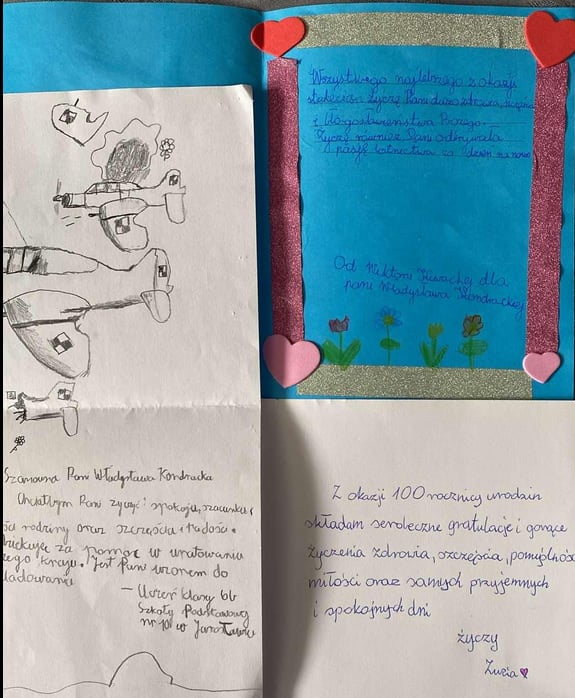 Wszystkiego najlepszego z okazji
stulecia życzę Pani dużo zdrowia,
i błogosławieństwa Bożego.
Życzę również Pani odkrywała
pasję lotnictwa za dzień na nowo
Od Wiktorii dla
pani Władysława Kondrackiej
Szanowna Pani Władysława Kondracka
Chciałbym Pani życzyć spokoju, szacunku
rodziny oraz szczęścia i radości.
za pomoc w uratowaniu
kraju. Jest Pani wzorem do
ladowania
— Uczeń klasy 6b
Szkoły Podstawowej
nr 10 w Jarosławiu
Z okazji 100 rocznicy urodzin
składam serdeczne gratulacje i gorące
życzenia zdrowia, szczęścia, pomyślnośc
miłości oraz samych przyjemnych
i spokojnych dni
życzy
Zuzia